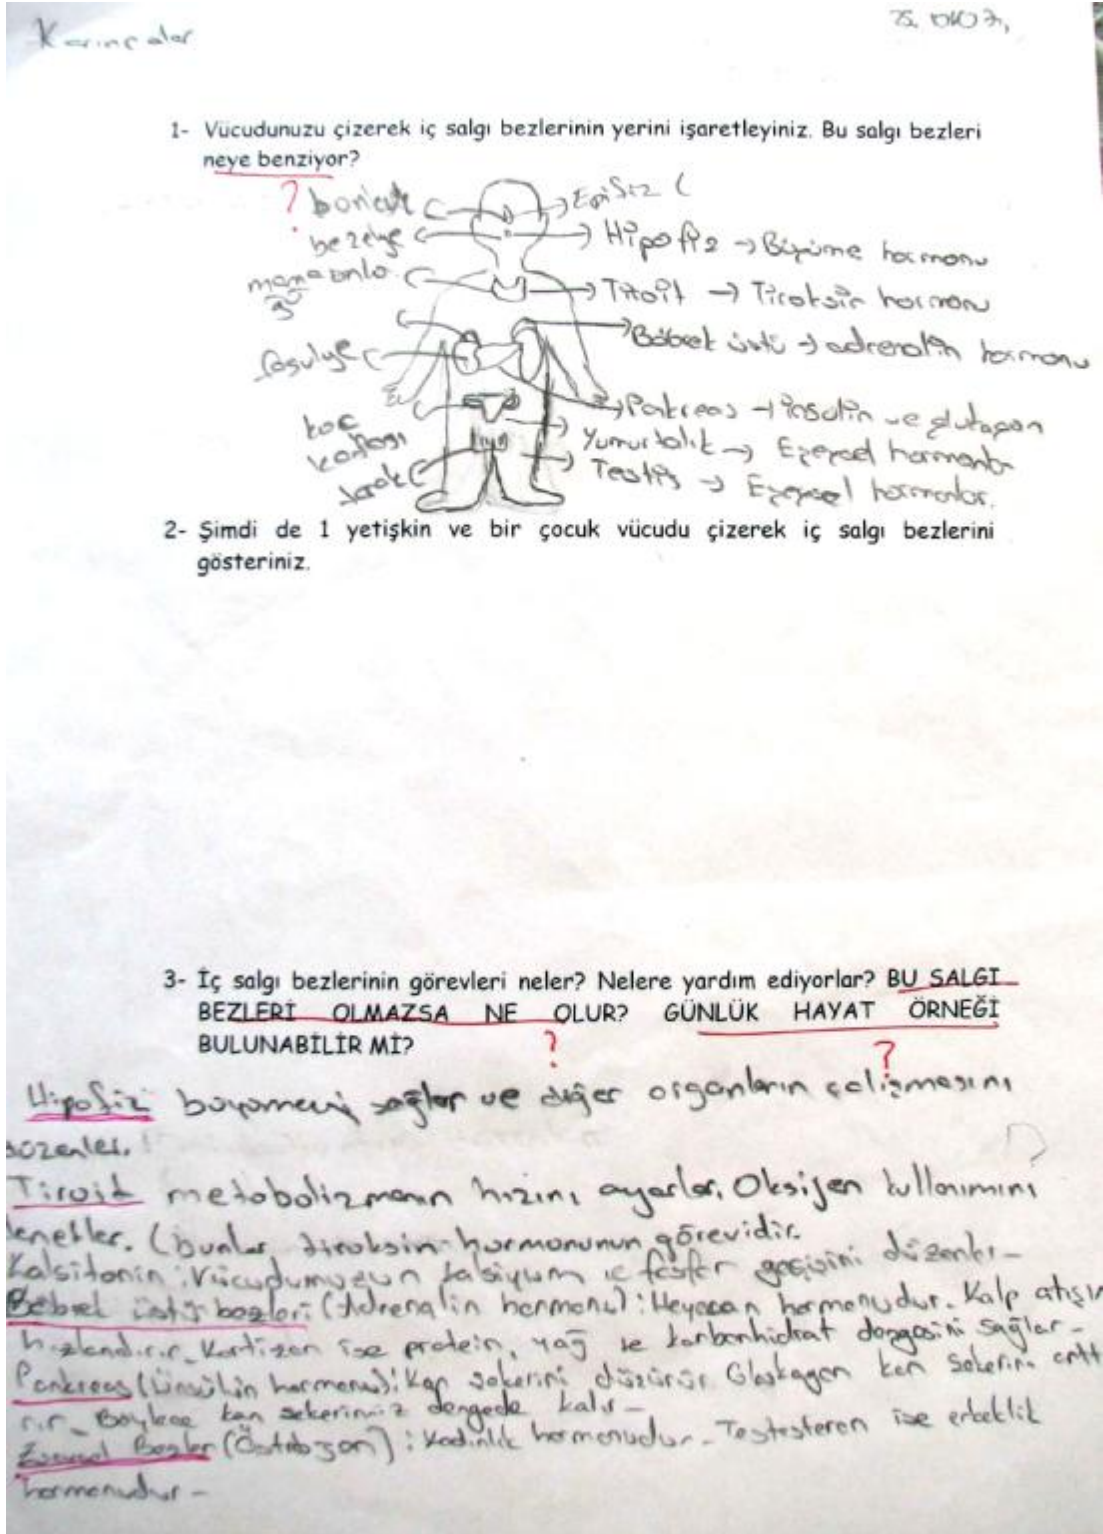 Karıncalar
1- Vücudunuzu çizerek iç salgı bezlerinin yerini işaretleyiniz. Bu salgı bezleri
neye benziyor?
?
boncuk
Epifiz (
bezelye
Hipofiz → Büyüme hormonu
Tiroit → Tiroksin hormonu
Böbrek üstü → adrenalin hormonu
fasulye
Pankreas → insülin ve glukagon
koç
kafası
Yumurtalık → Eşeysel hormonlar
Testis → Eşeysel hormonlar.
2- Şimdi de 1 yetişkin ve bir çocuk vücudu çizerek iç salgı bezlerini
gösteriniz.
3- İç salgı bezlerinin görevleri neler? Nelere yardım ediyorlar? BU SALGI
BEZLERİ OLMAZSA NE OLUR? GÜNLÜK HAYAT ÖRNEĞİ
BULUNABİLİR Mİ?
? ?
Hipofiz büyümeyi sağlar ve diğer organların çalışmasını
düzenler.
Tiroit metabolizmanın hızını ayarlar. Oksijen kullanımını
denetler. (bunlar tiroksin hormonunun görevidir.
Kalsitonin: Vücudumuzun kalsiyum ve fosfor geçişini düzenler-
Böbrek üstü bezleri (Adrenalin hormonu): Heyecan hormonudur. Kalp atışın
hızlandırır. Kortizon ise protein, yağ ve karbonhidrat dengesini sağlar-
Pankreas (İnsülin hormonu): Kan şekerini düşürür Glukagon kan şekerini artt
rır- Böylece kan şekerimiz dengede kalır-
Eşeysel Bezler (Östrojen): Kadınlık hormonudur- Testesteron ise erkeklik
hormonudur-